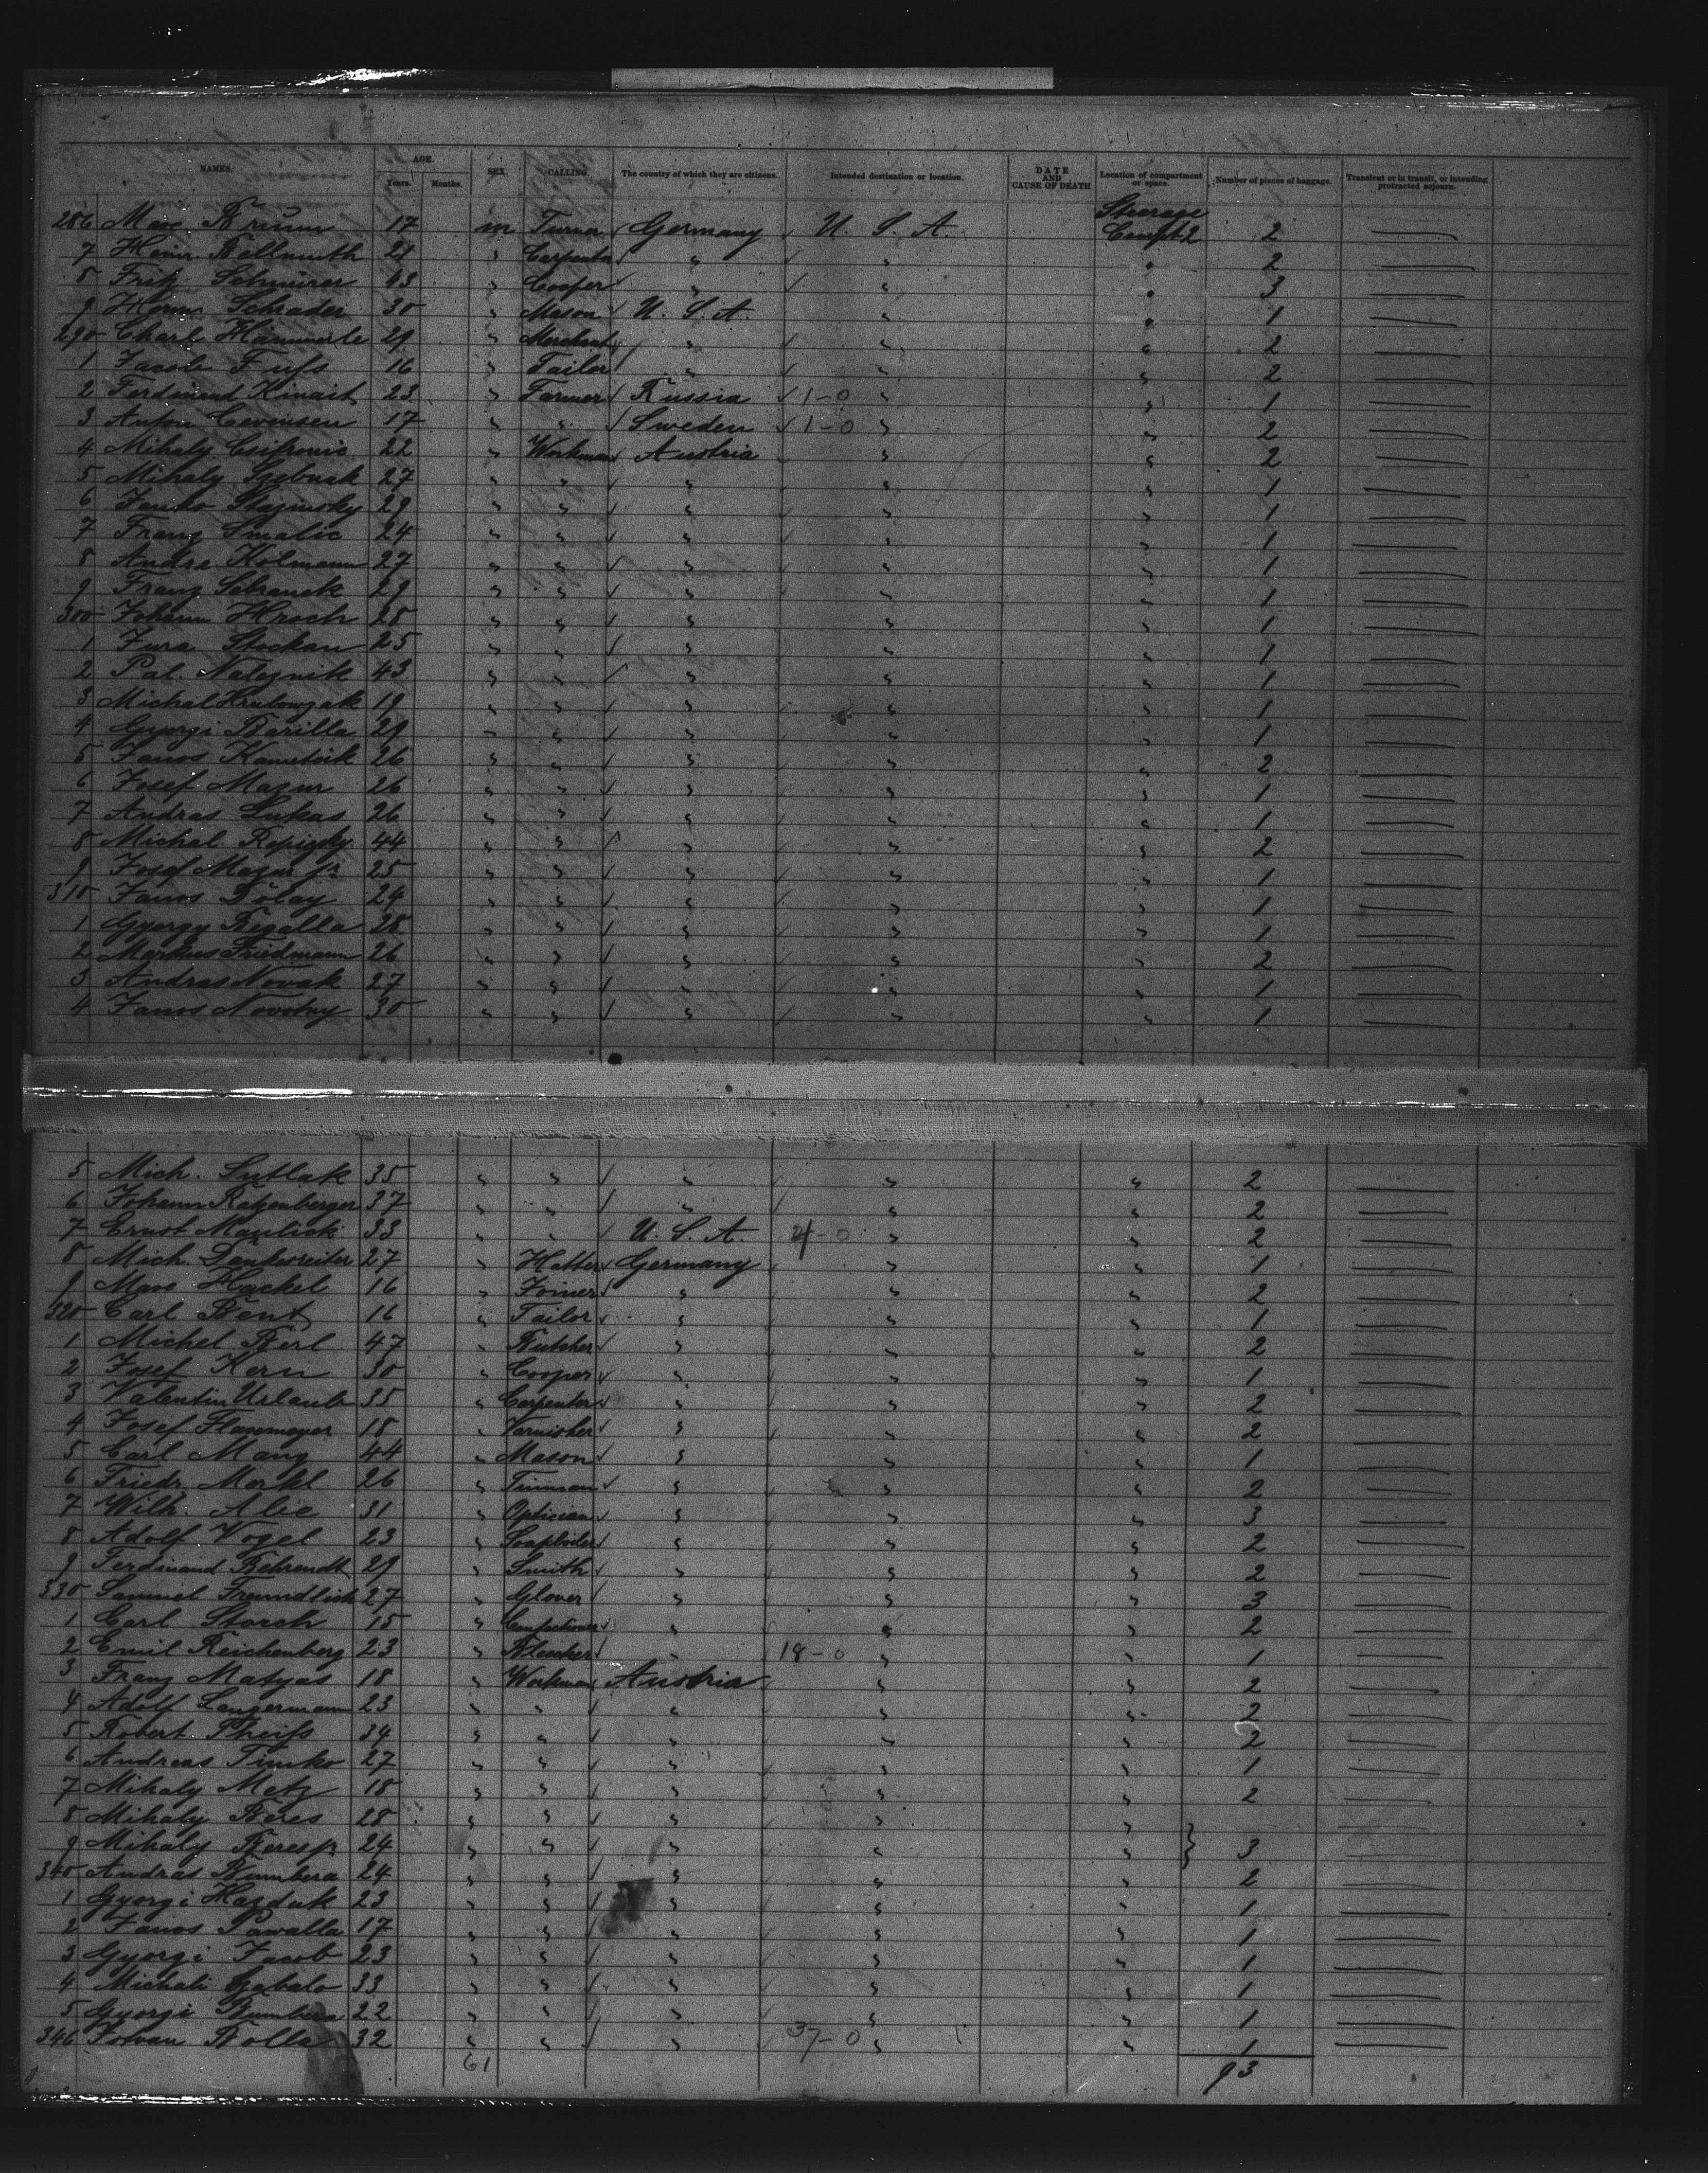 NAMES. AGE. Years. Months. SEX. CALLING. The country of which they are citizens. Intended destination or location. DATE AND CAUSE OF DEATH Location of compartment or space. Number of pieces of baggage. Transient or in transit, or intending protracted sojourn.
286 Max Brünn 17 m Turner Germany U. S. A. Steerage Compt 2 2
7 Heinr. Bellmuth 21 " Carpenter " " " 2
8 Fritz Schnürer 43 " Cooper " " " 3
9 Herm. Schrader 30 " Mason U. S. A. " " 1
290 Charl. Hämmerle 29 " Merchant " " " 2
1 Jacob Fuss 16 " Tailor " " " 2
2 Ferdinand Kinait 23 " Farmer Russia 1-0 " " 1
3 Anton Cevensen 17 " " Sweden 1-0 " " 2
4 Mihaly 22 " Workman Austria " " 2
5 Mihaly 27 " " " " " 1
6 Janko 29 " " " " " 1
7 Franz Smalic 24 " " " " " 1
8 Andre Kolmann 27 " " " " " 1
9 Franz Schranek 29 " " " " " 1
300 Johann Hroch 28 " " " " " 1
1 Jura Stockan 25 " " " " " 1
2 Pal. Naleznik 43 " " " " " 1
3 Michal 19 " " " " " 1
4 Gyorgi Barilla 29 " " " " " 1
5 Janos 26 " " " " " 2
6 Josef Mazur 26 " " " " " 1
7 Andras Lukas 26 " " " " " 1
8 Michal 44 " " " " " 2
9 Josef Mazur jr 25 " " " " " 1
310 Janos Dolay 24 " " " " " 1
1 Gyorgy Regalla 28 " " " " " 1
2 Markus Friedmann 26 " " " " " 2
3 Andras Novak 27 " " " " " 1
4 Janos Novotny 30 " " " " " 1
5 Mich. Sutlak 35 " " " " " 2
6 Johann Ratzenberger 37 " " " " " 2
7 Ernst 33 " " U. S. A. -0 " " 2
8 Mich. Dankesreiter 27 " Hatter Germany " " 1
9 Max Hackel 16 " Joiner " " " 2
320 Carl Bentz 16 " Tailor " " " 1
1 Michel Berl 47 " Butcher " " " 2
2 Josef Kern 30 " Cooper " " " 1
3 Valentin Urlaub 35 " Carpenter " " " 2
4 Josef 18 " Varnisher " " " 2
5 Carl Mang 44 " Mason " " " 1
6 Friedr. Merkl 26 " Tinman " " " 2
7 Wilh. Alie 31 " Optician " " " 3
8 Adolf Vogel 23 " Soapboiler " " " 2
9 Ferdinand Behrendt 29 " Smith " " " 2
330 Samuel Freundlich 27 " Glover " " " 3
1 Carl Storch 15 " Confectioner " " " 2
2 Emil Reichenberg 23 " Bleacher " 18-0 " " 1
3 Franz Matyas 18 " Workman Austria " " 2
4 Adolf Langermann 23 " " " " " 2
5 Robert Pheiss 34 " " " " " 2
6 Andreas Timko 27 " " " " " 1
7 Mihaly Metz 18 " " " " " 2
8 Mihaly Beres 28 " " " " "
9 Mihaly Beres jr. 24 " " " " " } 3
340 Andras Bumbera 24 " " " " " 2
1 Gyorgi Hazduk 23 " " " " " 1
2 Janos Pawalla 17 " " " " " 1
3 Gyorgi Jacob 23 " " " " " 1
4 Michali Gabalo 33 " " " " " 1
5 Gyorgi Bumbera 22 " " " " " 1
346 Istvan Bolla 32 " " " 37-0 " " 1
61 93